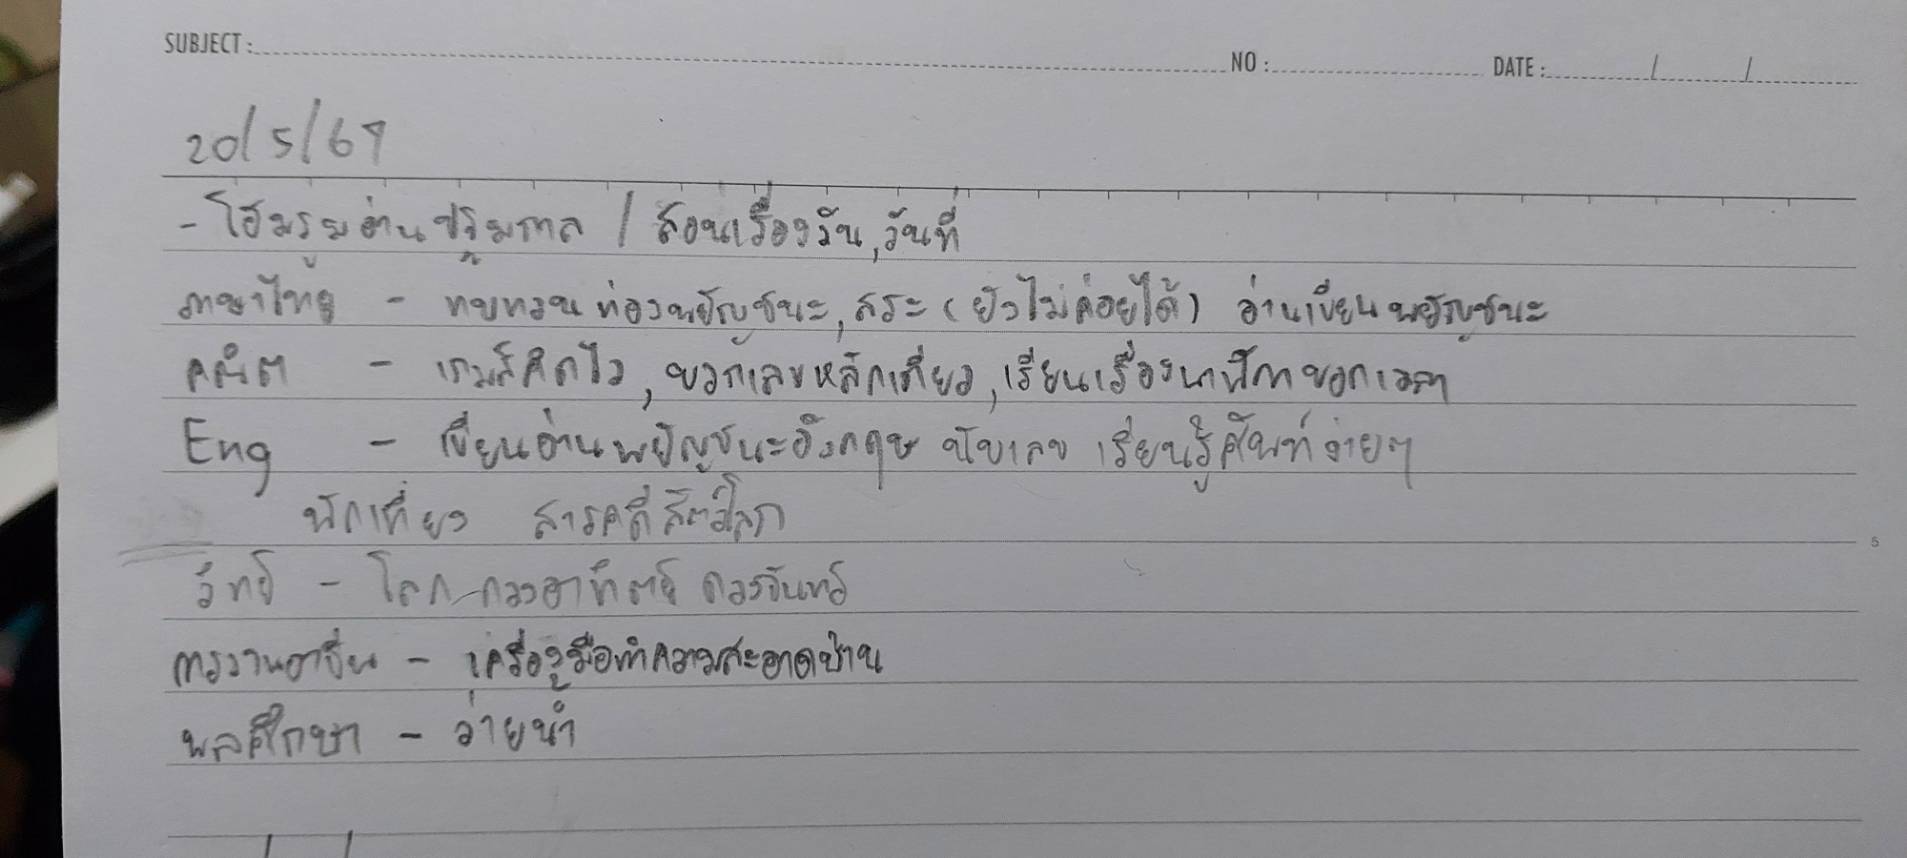 SUBJECT : NO : DATE : / /
20/5/67
- โฮมรูมอ่านปฐมกาล / สอนเรื่องวัน, วันที่
ภาษาไทย - ทบทวนท่องพยัญชนะ, สระ (ยังไม่ค่อยได้) อ่านเขียนพยัญชนะ
คณิต - เกมส์คิดไว, บวกเลขหลักเดี่ยว, เรียนเรื่องนาฬิกาบอกเวลา
Eng - เขียนอ่านพยัญชนะอังกฤษ นับเลข เรียนรู้ศัพท์ง่ายๆ
พักเที่ยง สารคดีสัตว์โลก
5
วิทย์ - โลก ดวงอาทิตย์ ดวงจันทร์
การงานอาชีพ - เครื่องมือทำความสะอาดบ้าน
พลศึกษา - ว่ายน้ำ